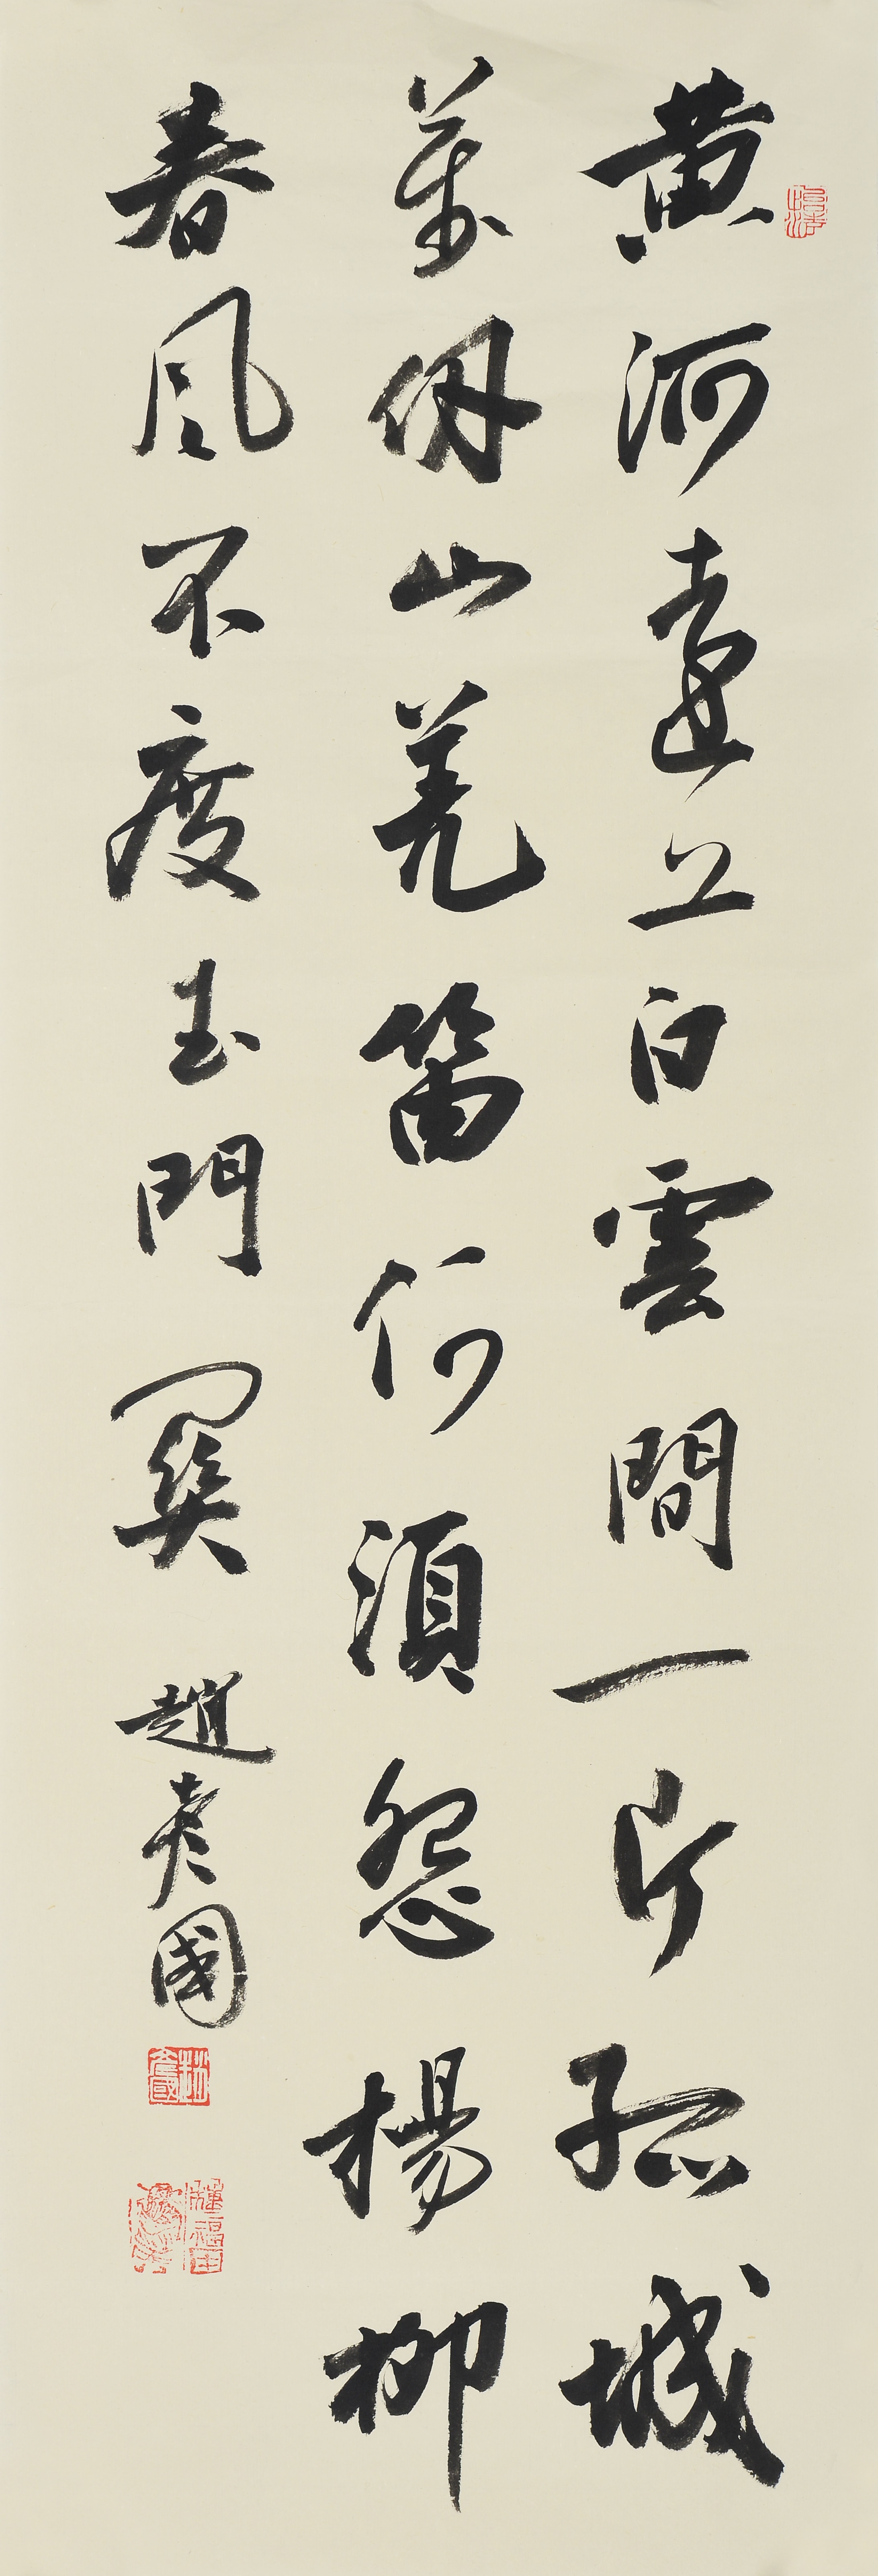 黃河遠上白雲間一片孤城
萬仞山羌笛何須怨楊柳
春風不度玉門關 趙彥國